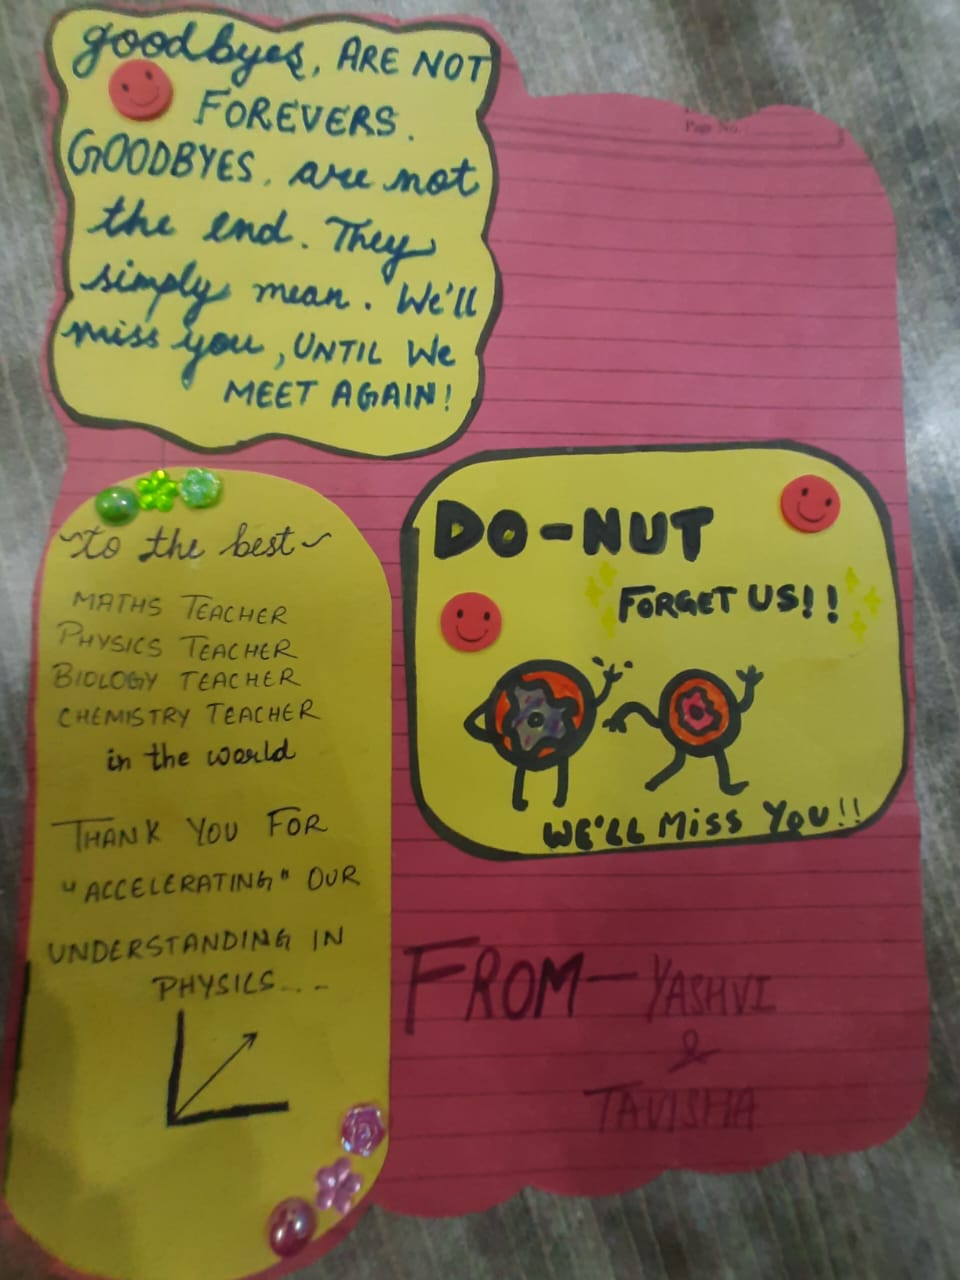 goodbyes, ARE NOT
FOREVERS.
GOODBYES. are not
the end. They
simply mean. We'll
miss you, UNTIL We
MEET AGAIN!
Page No.
~to the best~
MATHS TEACHER
PHYSICS TEACHER
BIOLOGY TEACHER
CHEMISTRY TEACHER
in the world
THANK YOU FOR
"ACCELERATING" OUR
UNDERSTANDING IN
PHYSICS...
DO-NUT
FORGET US!!
WE'LL MISS YOU!!
FROM- YASHVI
&
TAVISHA